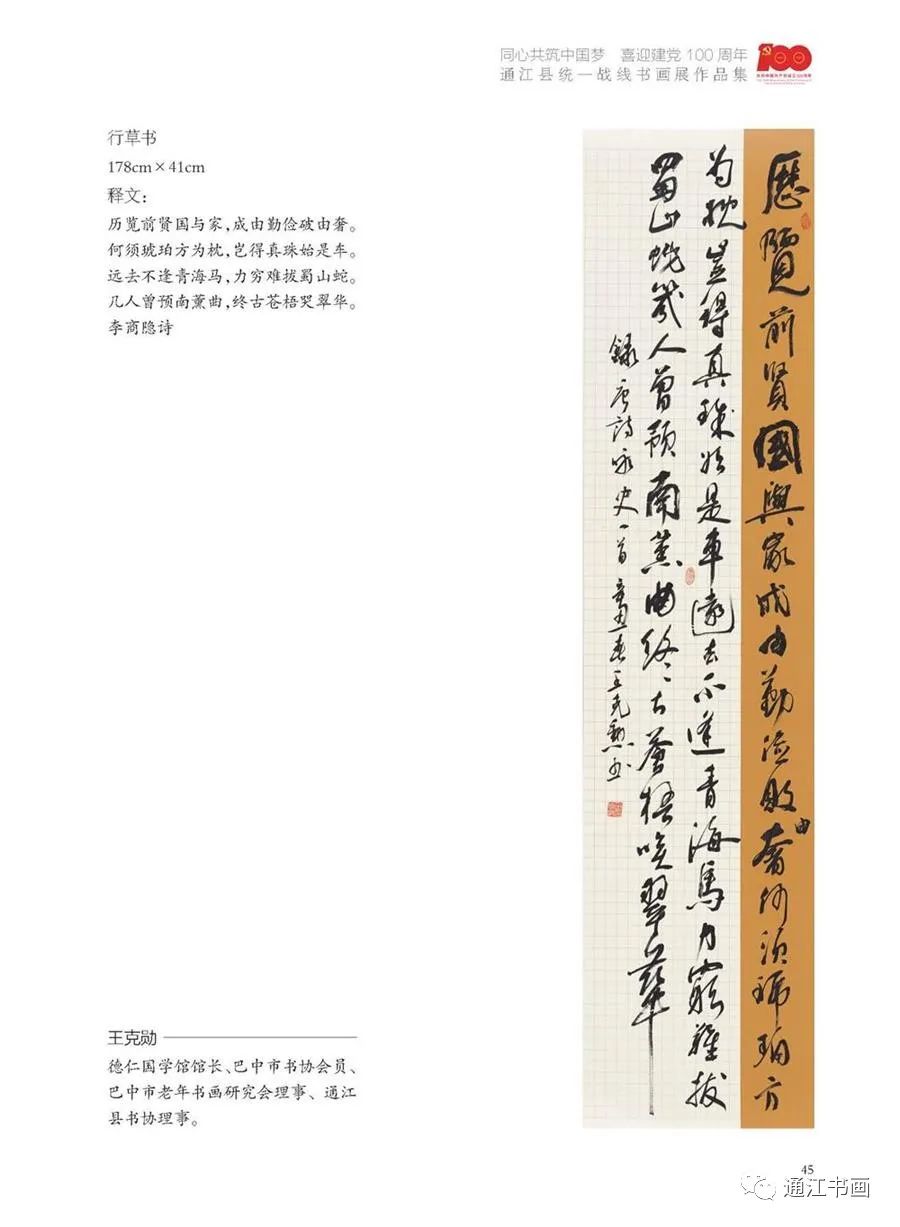 同心共筑中国梦 喜迎建党100周年
通江县统一战线书画展作品集
100
行草书
178cm×41cm
释文：
历览前贤国与家，成由勤俭破由奢。
何须琥珀方为枕，岂得真珠始是车。
远去不逢青海马，力穷难拔蜀山蛇。
几人曾预南薰曲，终古苍梧哭翠华。
李商隐诗
歷覽前賢國與家成由勤儉敗由奢何須琥珀方
為枕豈得真珠始是車遠去不逢青海馬力窮難拔
蜀山蛇幾人曾預南薰曲終古蒼梧哭翠華
錄唐詩咏史一首 辛丑春王克勛书
王克勋
德仁国学馆馆长、巴中市书协会员、
巴中市老年书画研究会理事、通江
县书协理事。
45
通江书画